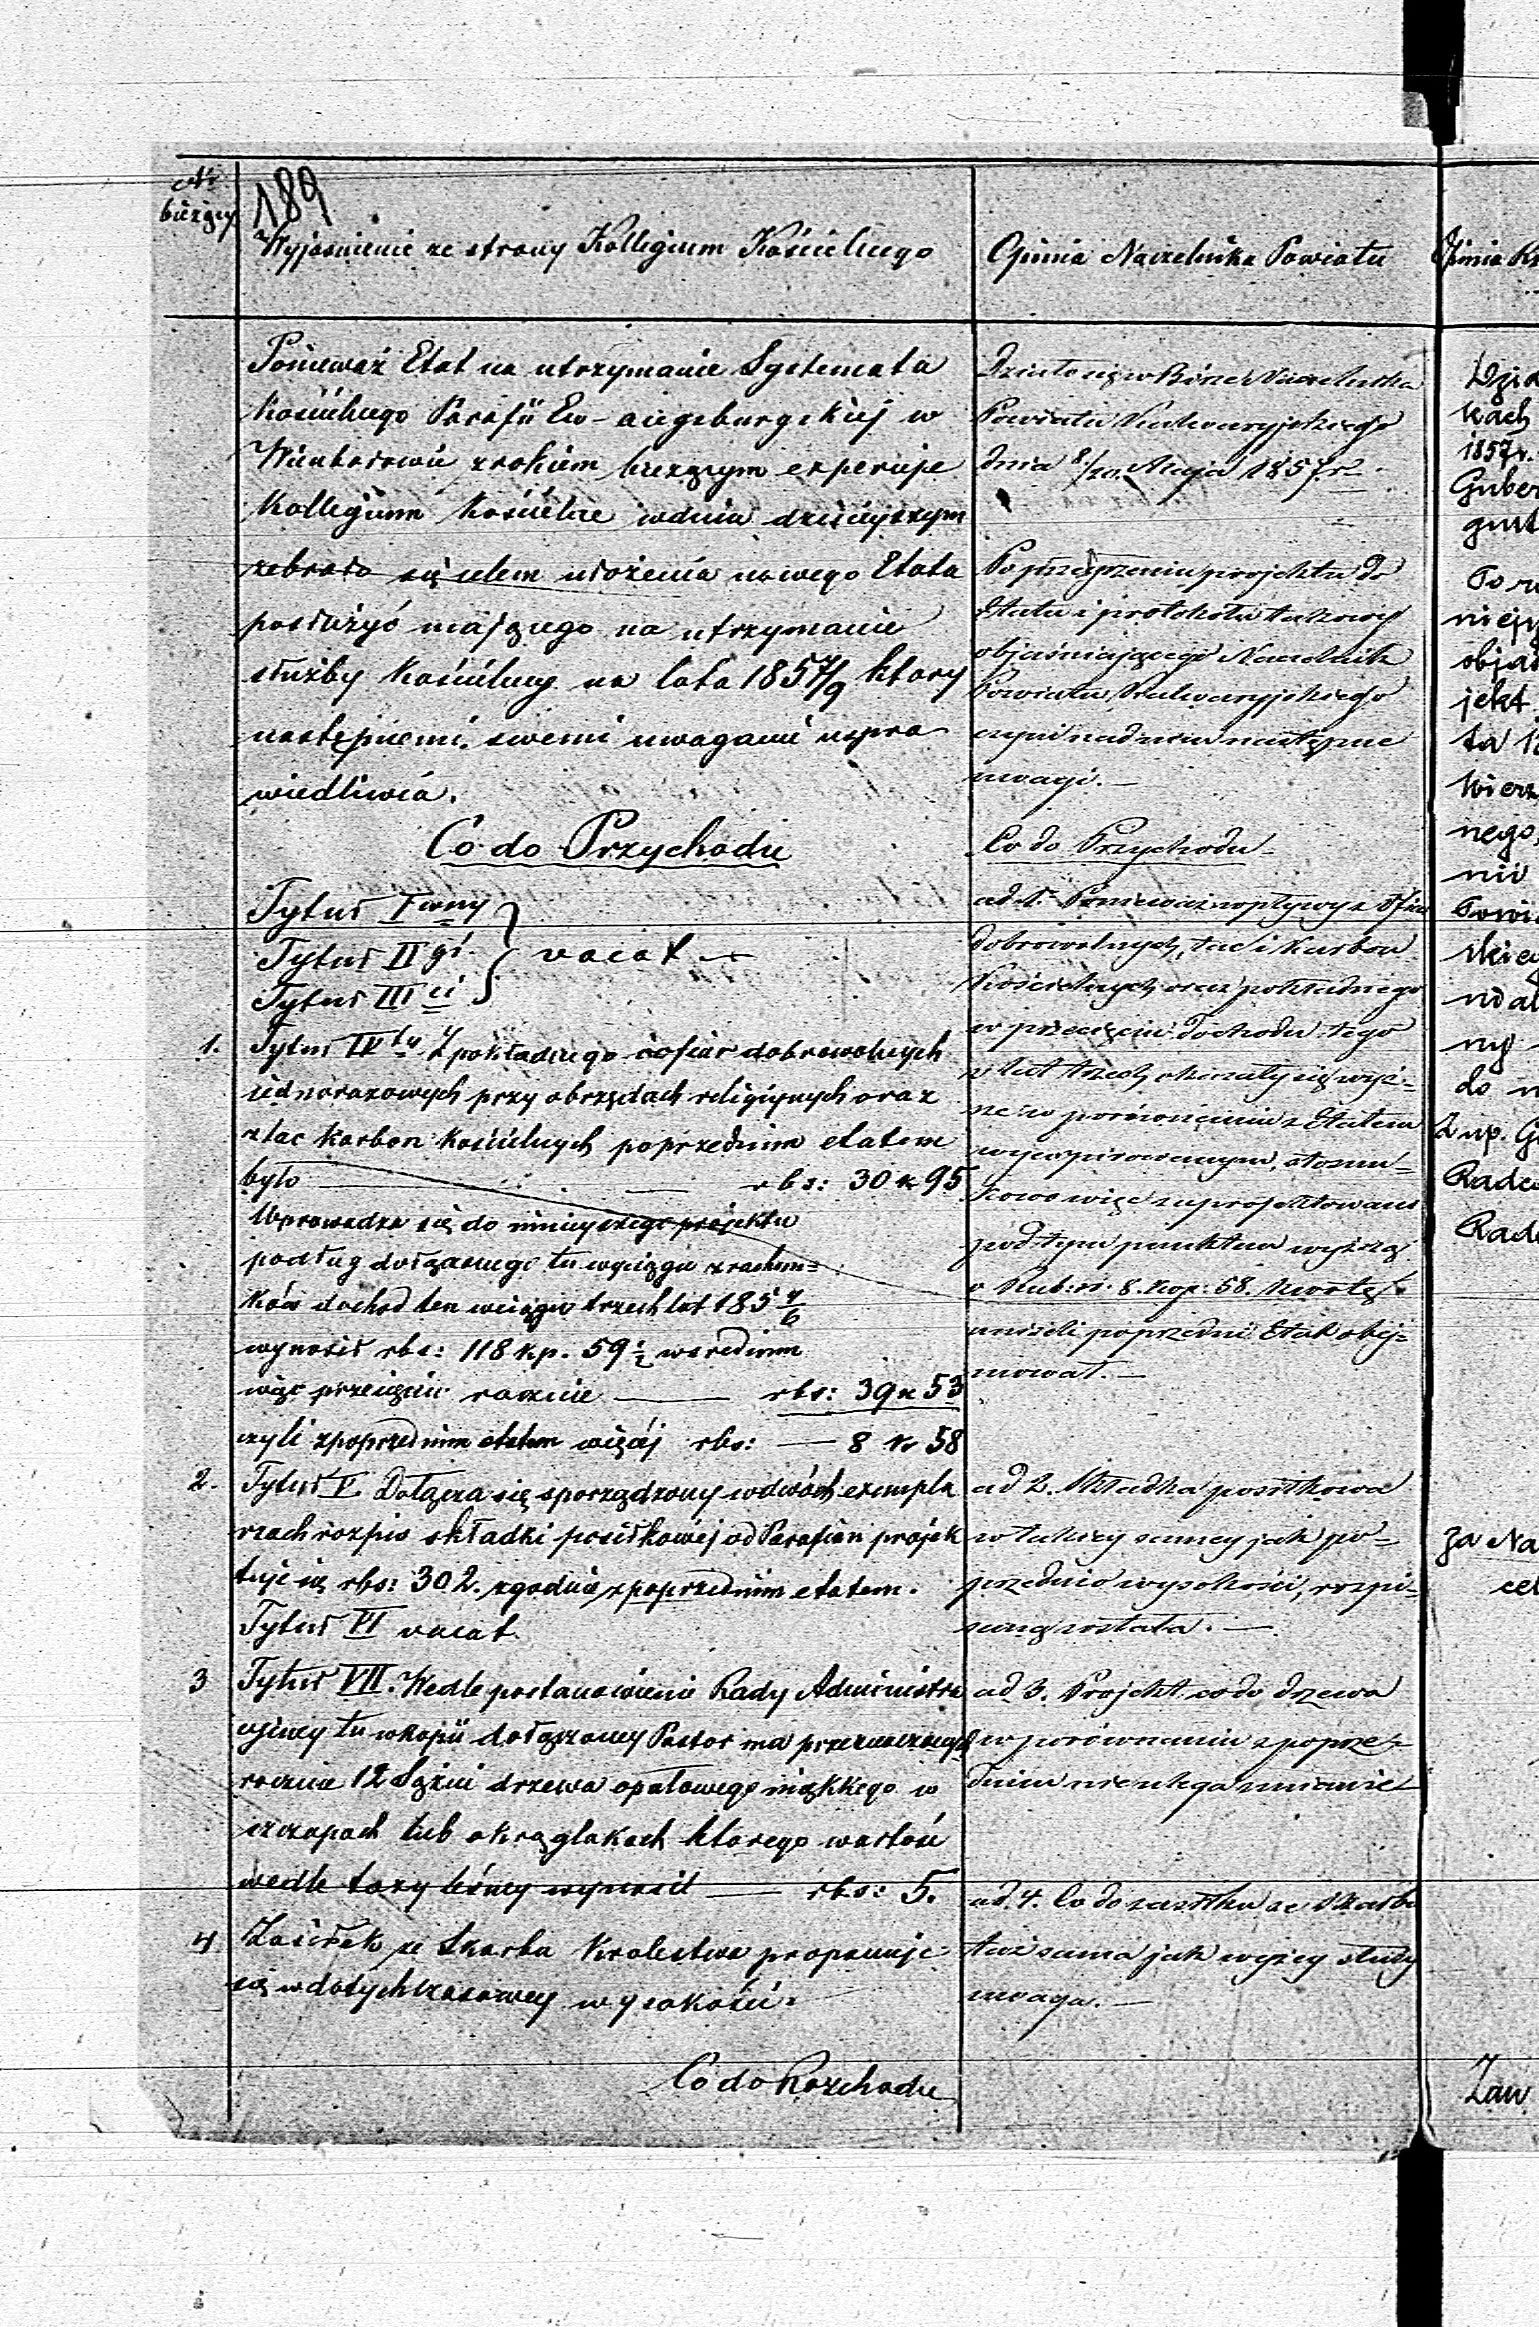 Nr
bieżący
189
Wyjaśnienie ze strony Kollegium Kościelnego
Ponieważ Etat na utrzymanie Systemata
Kościelnego Parafii Ew-augsburgskiej w
z rokiem bieżącym experuje
Kollegium Kościelne w dniu dzisiejszym
zebrało się celem ułożenia nowego Etatu
posłużyć mającego na utrzymanie
służby Kościelney na lata 1857/9 który
następnemi swemi uwagami uspra
wiedliwia.
Co do Przychodu
Tytuł I wszy
Tytuł II gi
Tytuł III ci
vacat
1. Tytuł IV ty Z pokładnego ofiar dobrowolnych
jednorazowych przy obrzędach religijnych oraz
z tac karbon Kościelnych poprzednim etatem
było rbs: 30 k 95
Wprowadza się do niniejszego projektu
podług dołączonego tu wyciągu z rachun=
ków dochod ten w ciągu trzech lat 185 4/6
wynosił rbs: 118 kp. 59 ½ w srednim
więc przecięciu rocznie rbs: 39 k 53
czyli z poprzednim etatem więcéj rbs: 8 k 58
2. Tytuł V Dołącza się sporządzony w dwóch exempla
rzach rozpis składki posiłkowéj od Parafian projek
tuje się rbs: 302. zgodnie z poprzednim etatem.
Tytuł VI vacat.
3 Tytuł VII. Wedle postanowienia Rady Administra
cyjney tu w kopii dołączoney Pastor ma przeznaczonych
rocznie 12 Sążni drzewa opałowego miękkiego w
szczapach lub okrąglakach którego wartość
wedle taxy leśney wynosi rbs: 5.
4 Zasiłek ze Skarbu Krolestwa proponuje
się w dotychczasowey wysokości.
Co do Rozchodu
Opinia Naczelnika Powiatu
Działo się w Biórze Naczelnika
Powiatu Kalwaryjskiego
dnia 8/20. Maja 1857 r.
Po przejrzeniu projektu do
Etatu i protokołu takowy
objaśniającego Naczelnik
Powiatu Kalwaryjskiego
czyni nad niem następne
uwagi.—
Co do Przychodu
ad 1. Ponieważ wpływy z Ofiar
dobrowolnych, tac i karbon
Kościelnych oraz pokładnego
w przecięciu dochodu tego
z lat trzech okazały się wyż=
sze w porównaniu z Etatem
stosun=
kowo więc zaprojektowano
pod tym punktem wyżéj
o Rub. sr. 8. kop. 58. kwotę
niżeli poprzedni Etat obej=
mował.—
ad 2. Składka posiłkowa
w takiey samey jak po=
przednio wysokości, rozpi=
saną została.—
ad 3. Projekt co do drzewa
w porównaniu z poprze=
dnim nie ulega zmianie
ad. 4. Co do zasiłku ze Skarbu
taż sama jak wyżey służy
uwaga.—
Opinia
Dzia
kach
1857 r.
Guber
gust
Po
niejs
objaś
jekt
ta
wierz
nego,
nie
Powi
skieg
ny
do
Z up. G
Radca
Radc
Za Na
cel
Zaw